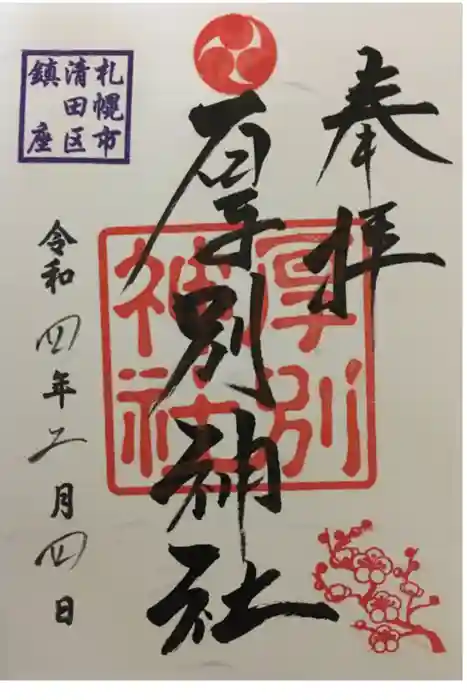 奉拝
厚別神社
厚別神社
札幌市
清田区
鎮座
令和四年二月四日